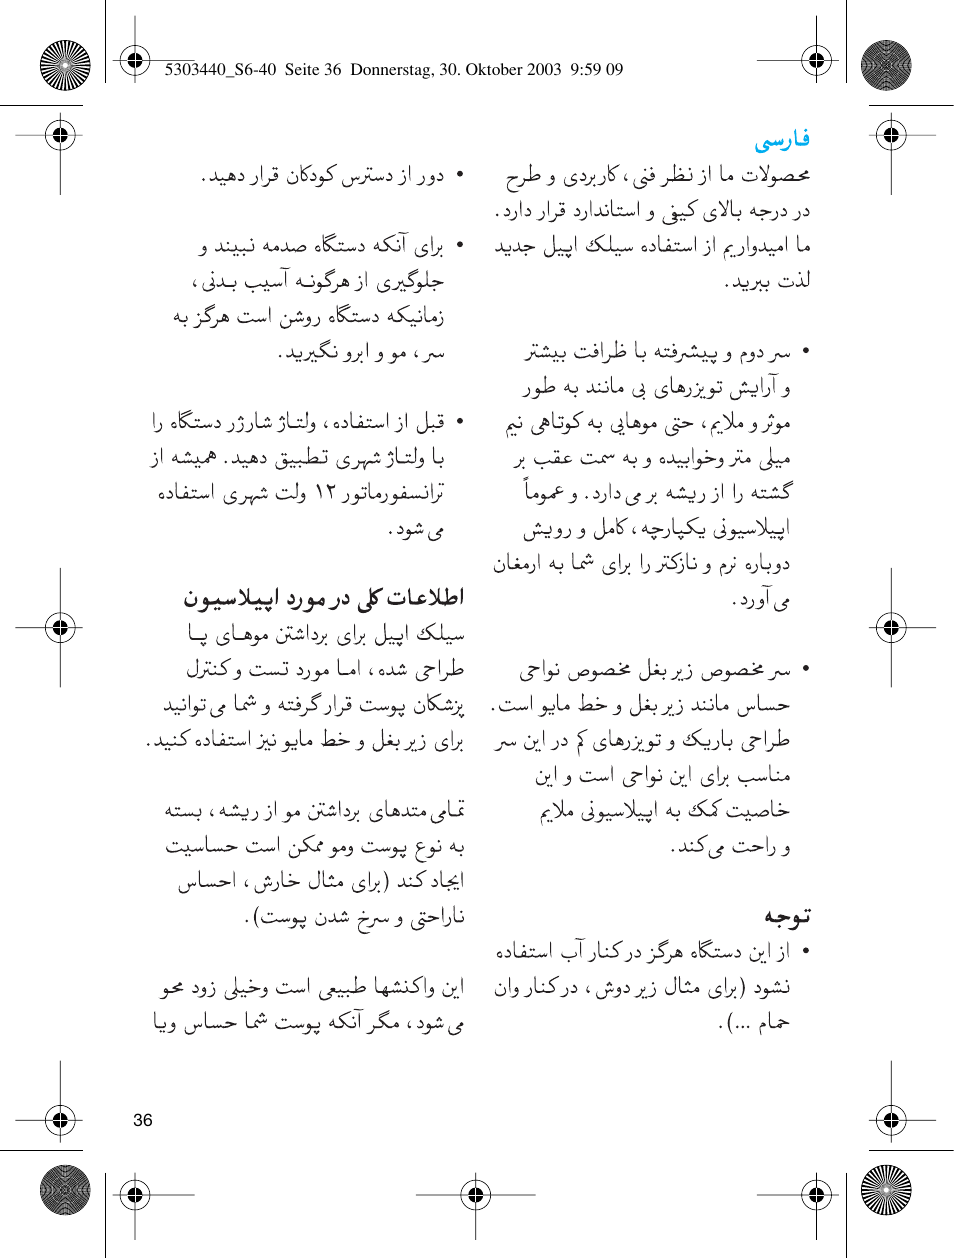 5303440_S6-40 Seite 36 Donnerstag, 30. Oktober 2003 9:59 09
فارسی
محصولات ما از نظر فنی، کاربردی و طرح
در درجه بالای کیفی و استاندارد قرار دارد.
ما امیدواریم از استفاده سیلک اپیل جدید
لذت ببرید.
• سر دوم و پیشرفته با ظرافت بیشتر
و آرایش تویزرهای بی مانند به طور
موثر و ملایم، حتی موهایی به کوتاهی نیم
میلی متر وخوابیده و به سمت عقب بر
گشته را از ریشه بر می دارد. و عموماً
اپیلاسیونی یکپارچه، کامل و رویش
دوباره نرم و نازکتر را برای شما به ارمغان
می آورد.
• سر مخصوص زیر بغل مخصوص نواحی
حساس مانند زیر بغل و خط مایو است.
طراحی باریک و تویزرهای کم در این سر
مناسب برای این نواحی است و این
خاصیت کمک به اپیلاسیونی ملایم
و راحت می کند.
توجه
• از این دستگاه هرگز در کنار آب استفاده
نشود (برای مثال زیر دوش، در کنار وان
حمام ...).
• دور از دسترس کودکان قرار دهید.
• برای آنکه دستگاه صدمه نبیند و
جلوگیری از هرگونه آسیب بدنی،
زمانیکه دستگاه روشن است هرگز به
سر، مو و ابرو نگیرید.
• قبل از استفاده، ولتاژ شارژر دستگاه را
با ولتاژ شهری تطبیق دهید. همیشه از
ترانسفورماتور ۱۲ ولت شهری استفاده
می شود.
اطلاعات کلی در مورد اپیلاسیون
سیلک اپیل برای برداشتن موهای پا
طراحی شده، اما مورد تست و کنترل
پزشکان پوست قرار گرفته و شما می توانید
برای زیر بغل و خط مایو نیز استفاده کنید.
تمامی متدهای برداشتن مو از ریشه، بسته
به نوع پوست ومو ممکن است حساسیت
ایجاد کند (برای مثال خارش، احساس
ناراحتی و سرخ شدن پوست).
این واکنشها طبیعی است وخیلی زود محو
می شود، مگر آنکه پوست شما حساس ویا
36